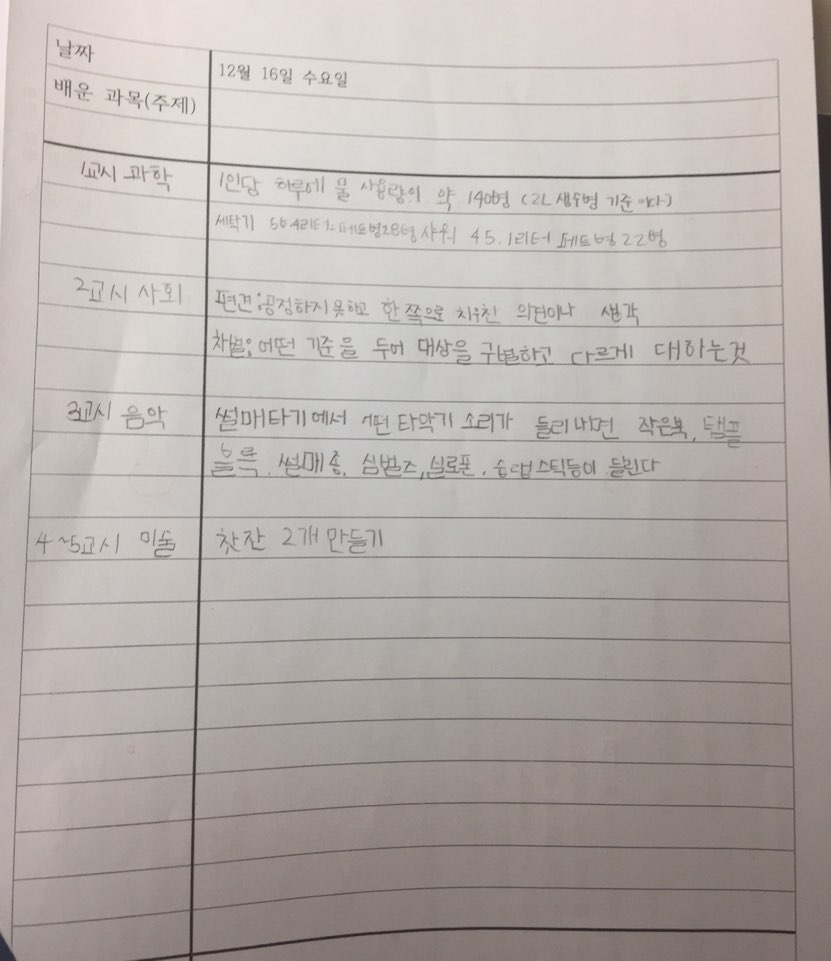 날짜
12월 16일 수요일
배운 과목(주제)
1교시 과학
1인당 하루에 물 사용량이 약 140병 (2L 생수병 기준이다)
세탁기 56.4리터는 페트병28병 샤워 45.1리터 페트병 22병
2교시 사회
편견:공정하지 못하고 한쪽으로 치우친 의견이나 생각
차별:어떤 기준을 두어 대상을 구별하고 다르게 대하는것
3교시 음악
썰매타기에서 어떤 타악기 소리가 들리냐면 작은북, 탬플
블록, 썰매종, 심벌즈,실로폰, 슬랩스틱등이 들린다
4~5교시 미술
찻잔 2개 만들기